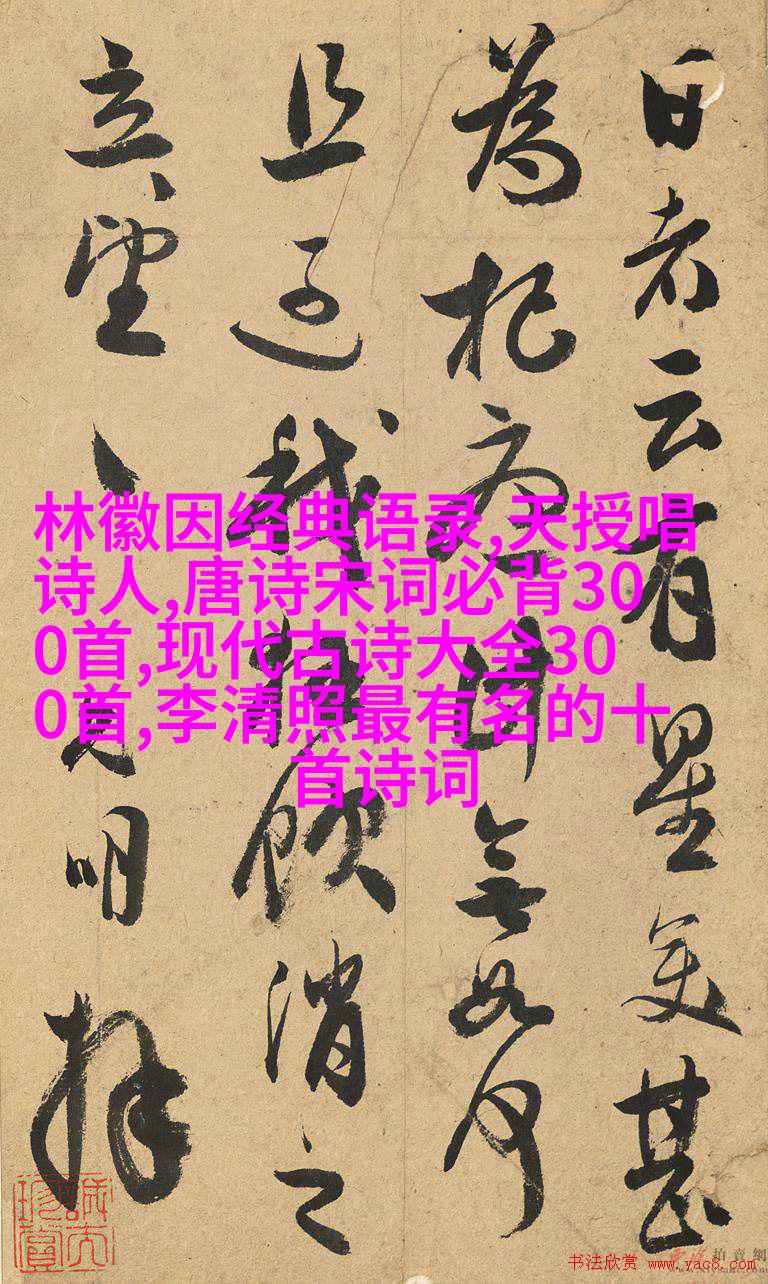 日者云有星甚
為犯無如何
且過我飲消之
立望明拜
林徽因经典语录,天授唱
诗人,唐诗宋词必背30
0首,现代古诗大全30
0首,李清照最有名的十
首诗词
书法欣赏 www.yac8.com